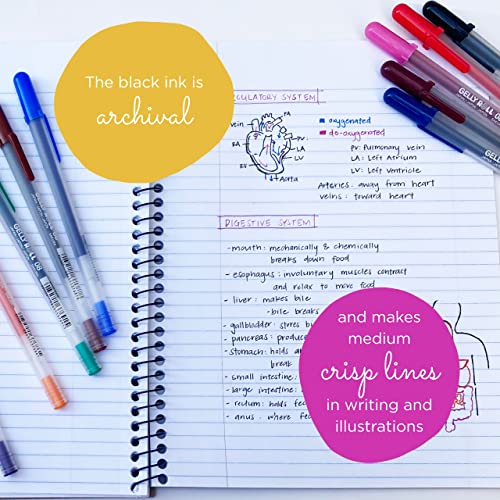 The black ink is
archival
CULATORY SYSTEM
PA
vein
AA
LA
RA
LV
RV
Aorta
oxygenated
de-oxygenated
PV: Pulmonary vein
LA: Left Atrium
LV: Left Ventricle
Arteries: away from heart
veins: toward heart
DIGESTIVE SYSTEM
- mouth: mechanically & chemically
breaks down food
- esophagus: involuntary muscles contract
and relax to move food
- liver: makes bile
- bile breaks
- gallbladder: stores bi
- pancreas: produc
- stomach: holds a
break
- small intestine:
- large intestine:
- rectum: holds fec
- anus: where fe
and makes
medium
crisp lines
in writing and
illustrations
GELLY ROLL 08
GELLY ROLL 08
GELLY ROLL
GELLY ROLL